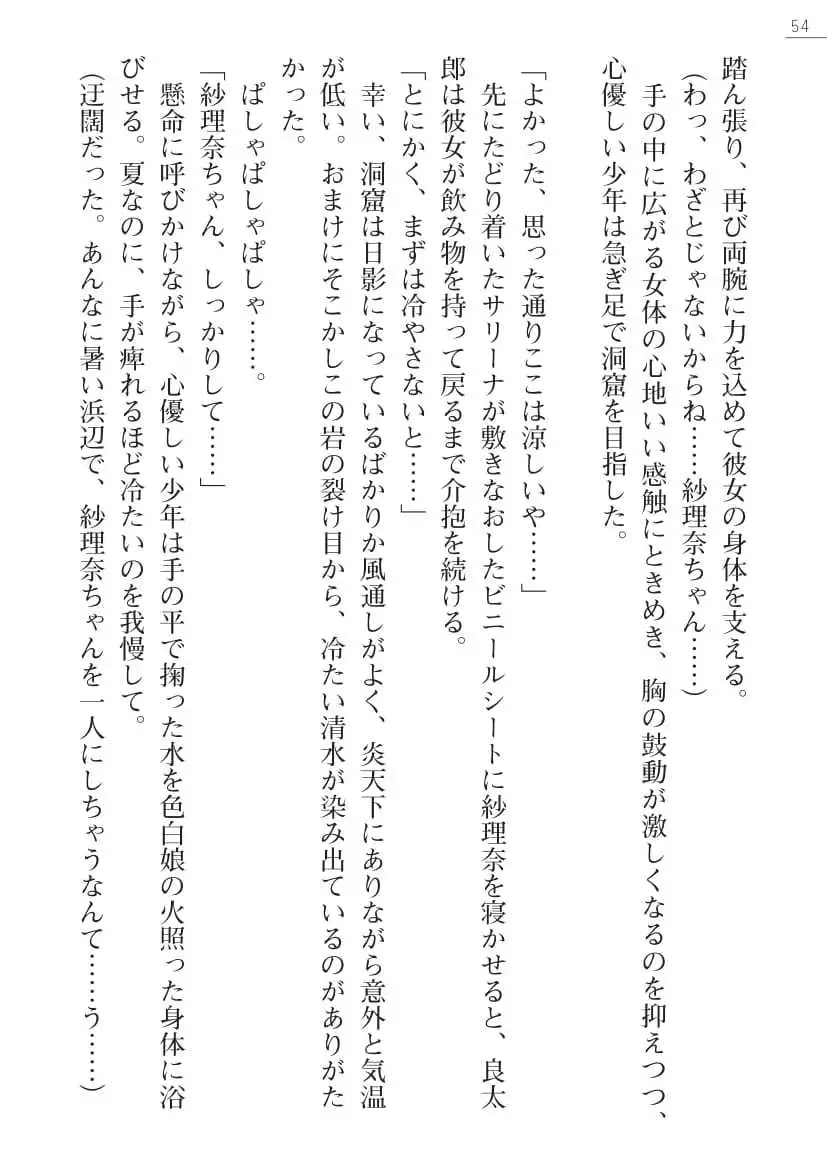 54
踏ん張り、再び両腕に力を込めて彼女の身体を支える。
（わっ、わざとじゃないからね……紗理奈ちゃん……）
手の中に広がる女体の心地いい感触にときめき、胸の鼓動が激しくなるのを抑えつつ、
心優しい少年は急ぎ足で洞窟を目指した。
「よかった、思った通りここは涼しいや……」
先にたどり着いたサリーナが敷きなおしたビニールシートに紗理奈を寝かせると、良太
郎は彼女が飲み物を持って戻るまで介抱を続ける。
「とにかく、まずは冷やさないと……」
幸い、洞窟は日影になっているばかりか風通しがよく、炎天下にありながら意外と気温
が低い。おまけにそこかしこの岩の裂け目から、冷たい清水が染み出ているのがありがた
かった。
ぱしゃぱしゃぱしゃ……。
「紗理奈ちゃん、しっかりして……」
懸命に呼びかけながら、心優しい少年は手の平で掬った水を色白娘の火照った身体に浴
びせる。夏なのに、手が痺れるほど冷たいのを我慢して。
（迂闊だった。あんなに暑い浜辺で、紗理奈ちゃんを一人にしちゃうなんて……う……）